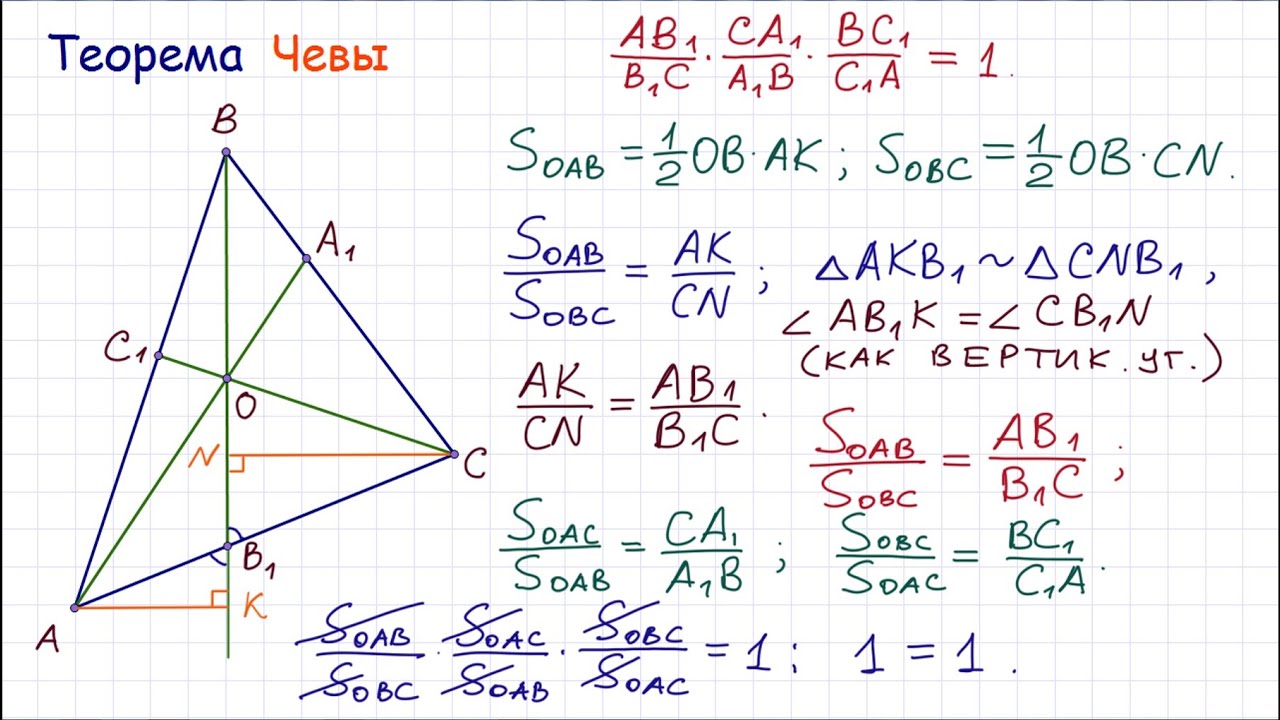 Теорема Чевы
AB₁/B₁C · CA₁/A₁B · BC₁/C₁A = 1.
S_OAB = 1/2 OB · AK ; S_OBC = 1/2 OB · CN.
S_OAB/S_OBC = AK/CN ; △AKB₁ ~ △CNB₁ ,
∠AB₁K = ∠CB₁N
(КАК ВЕРТИК. УГ.)
AK/CN = AB₁/B₁C .
S_OAB/S_OBC = AB₁/B₁C ;
S_OAC/S_OAB = CA₁/A₁B ; S_OBC/S_OAC = BC₁/C₁A .
S_OAB/S_OBC · S_OAC/S_OAB · S_OBC/S_OAC = 1 ; 1 = 1 .
B
A₁
C₁
O
N
C
B₁
K
A